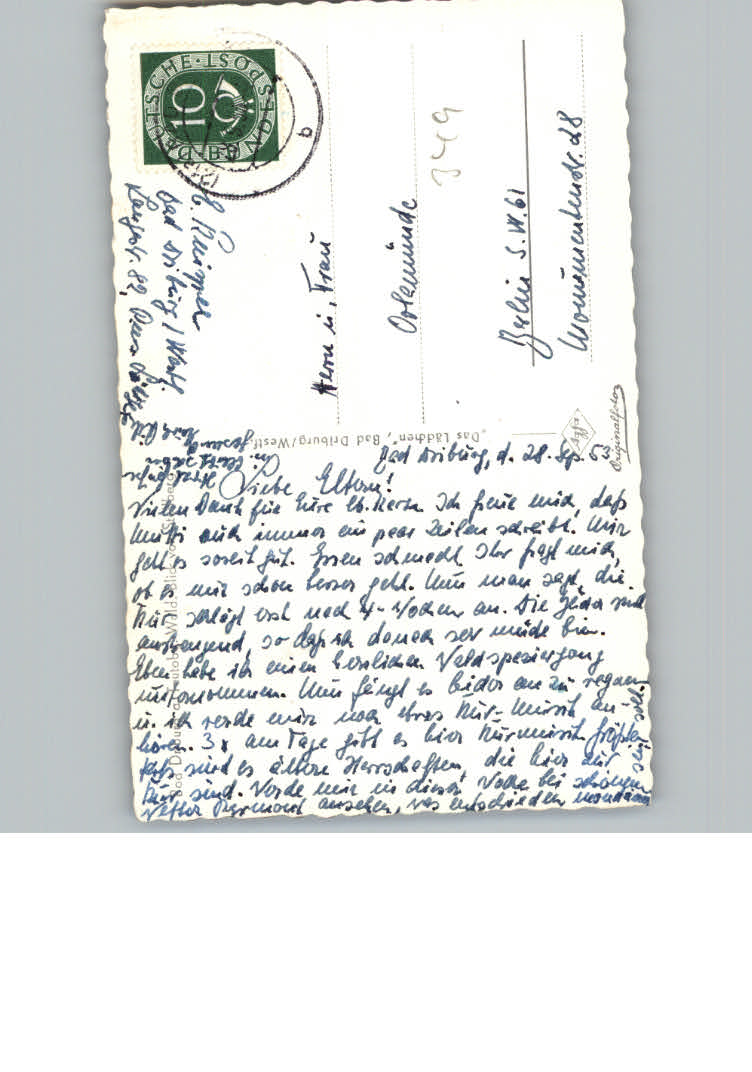 DEUTSCHE BUNDESPOST
10
b
349
Bad Driburg / Westf.
Langestr. 89,
Herrn u. Frau
Berlin S.W. 61
28
Agfa
Originalfoto
"Das Lädchen", Bad Driburg/Westf.
Bad Driburg, d. 28. Sep. 53
Liebe Eltern!
Vielen Dank für Eure lb. Karte. Ich freue mich, daß
Mutti auch immer ein paar Zeilen schreibt. Mir
geht es soweit gut. Essen schmeckt. Ihr fragt mich,
ob es mir schon besser geht. Nun man sagt, die
Kur schlägt erst nach 4 Wochen an. Die Bäder sind
anstrengend, so daß ich danach sehr müde bin.
Eben habe ich einen herrlichen Waldspaziergang
unternommen. Nun fängt es leider an zu regnen
u. ich werde mir noch etwas Kur-Musik an-
hören. 3x am Tage gibt es hier Kurmusik. Größten-
teils sind es ältere Herrschaften, die hier zur
Kur sind. Werde mir in dieser Woche bei schönem
Wetter Pyrmont ansehen, was entschieden
sein soll.